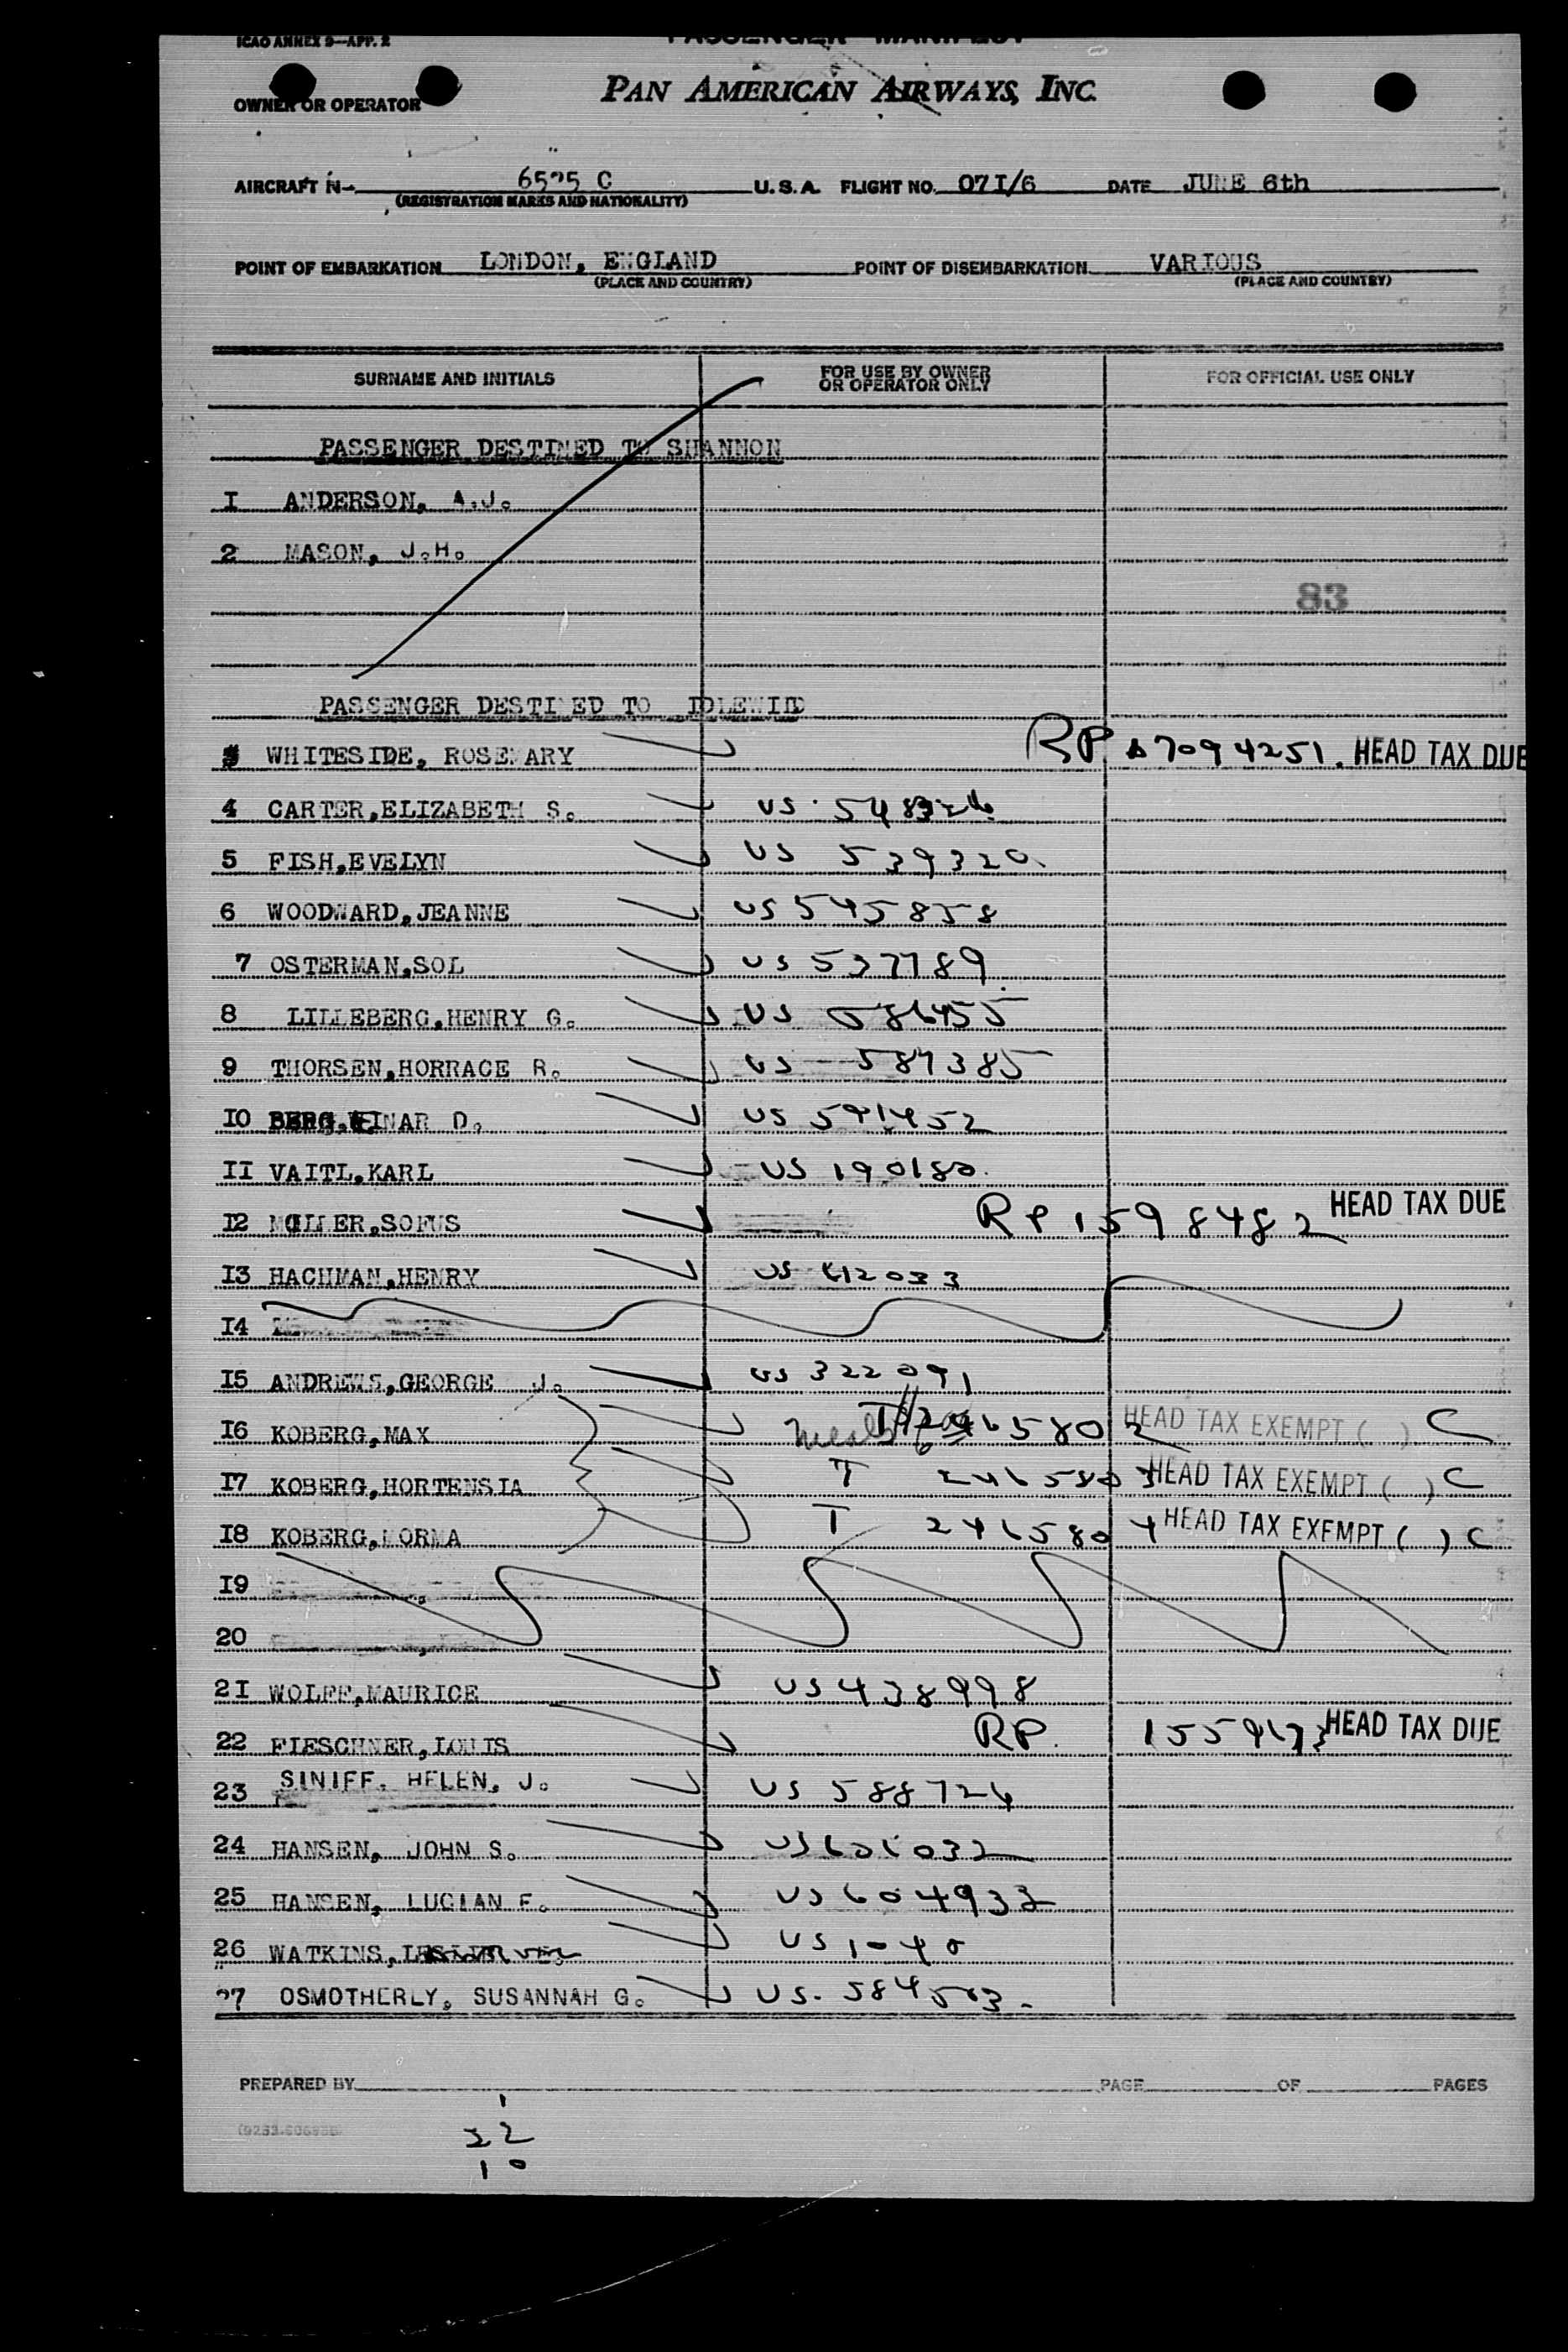 ICAO ANNEX 9—APP. 2
PASSENGER MANIFEST
OWNER OR OPERATOR PAN AMERICAN AIRWAYS, INC.
AIRCRAFT N— C U.S.A. FLIGHT NO. 07I/6 DATE JUNE 6th
(REGISTRATION MARKS AND NATIONALITY)
POINT OF EMBARKATION LONDON, ENGLAND POINT OF DISEMBARKATION VARIOUS
(PLACE AND COUNTRY) (PLACE AND COUNTRY)
SURNAME AND INITIALS FOR USE BY OWNER OR OPERATOR ONLY FOR OFFICIAL USE ONLY
PASSENGER DESTINED TO SHANNON
I ANDERSON, A.J.
2 MASON, J.H.
83
PASSENGER DESTINED TO IDLEWILD
WHITESIDE, ROSEMARY RP A7094251. HEAD TAX DUE
4 CARTER,ELIZABETH S. US
5 FISH,EVELYN US 539320
6 WOODWARD,JEANNE US 545858
7 OSTERMAN,SOL US 537789
8 LILLEBERG,HENRY G. US 586455
9 THORSEN,HORRACE R. US 587385
IO BERG,EINAR D. US 591452
II VAITL,KARL US 190180
I2 MØLLER,SOFUS RP 1598482 HEAD TAX DUE
I3 HACHMAN,HENRY US 612033
I4
I5 ANDREWS,GEORGE J. US 322091
I6 KOBERG,MAX Meals T 2465802 HEAD TAX EXEMPT ( ) C
I7 KOBERG,HORTENSIA T 2465803 HEAD TAX EXEMPT ( ) C
I8 KOBERG,NORMA T 2465804 HEAD TAX EXEMPT ( ) C
I9
20
2I WOLFF,MAURICE US 438998
22 FIESCHNER,LOUIS RP HEAD TAX DUE
23 SINIFF, HELEN, J. US 588726
24 HANSEN, JOHN S. US 606032
25 HANSEN, LUCIAN F. US 604933
26 WATKINS, US 1040
27 OSMOTHERLY, SUSANNAH G. US. 584503
PREPARED BY PAGE OF PAGES
1
22
10